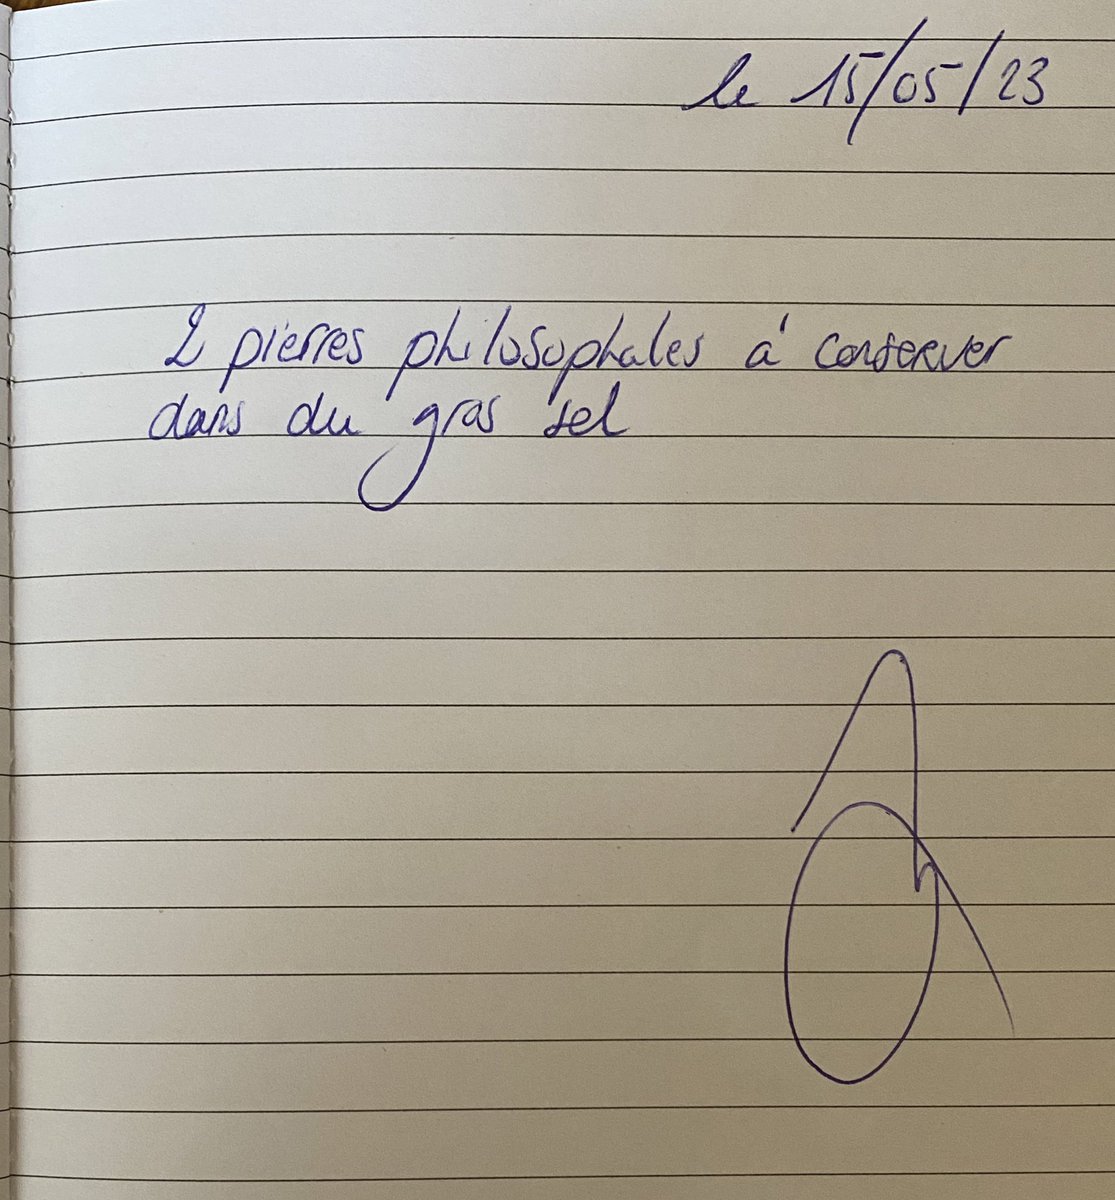 le 15/05/23
2 pierres philosophales à conserver
dans du gras sel